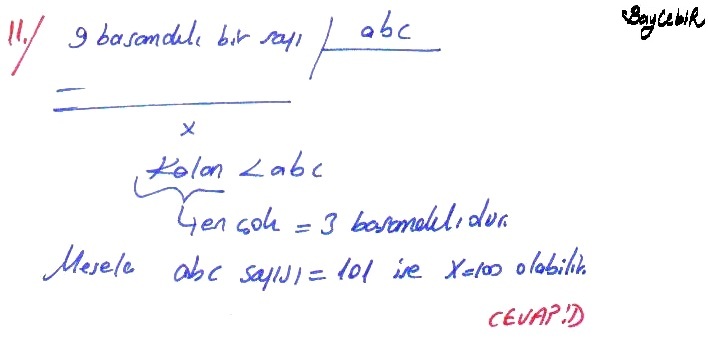 BayCebir
11./ 9 basamaklı bir sayı | abc
x
Kalan < abc
en çok = 3 basamaklıdır.
Mesela abc sayısı = 101 ise x=100 olabilir.
CEVAP:D